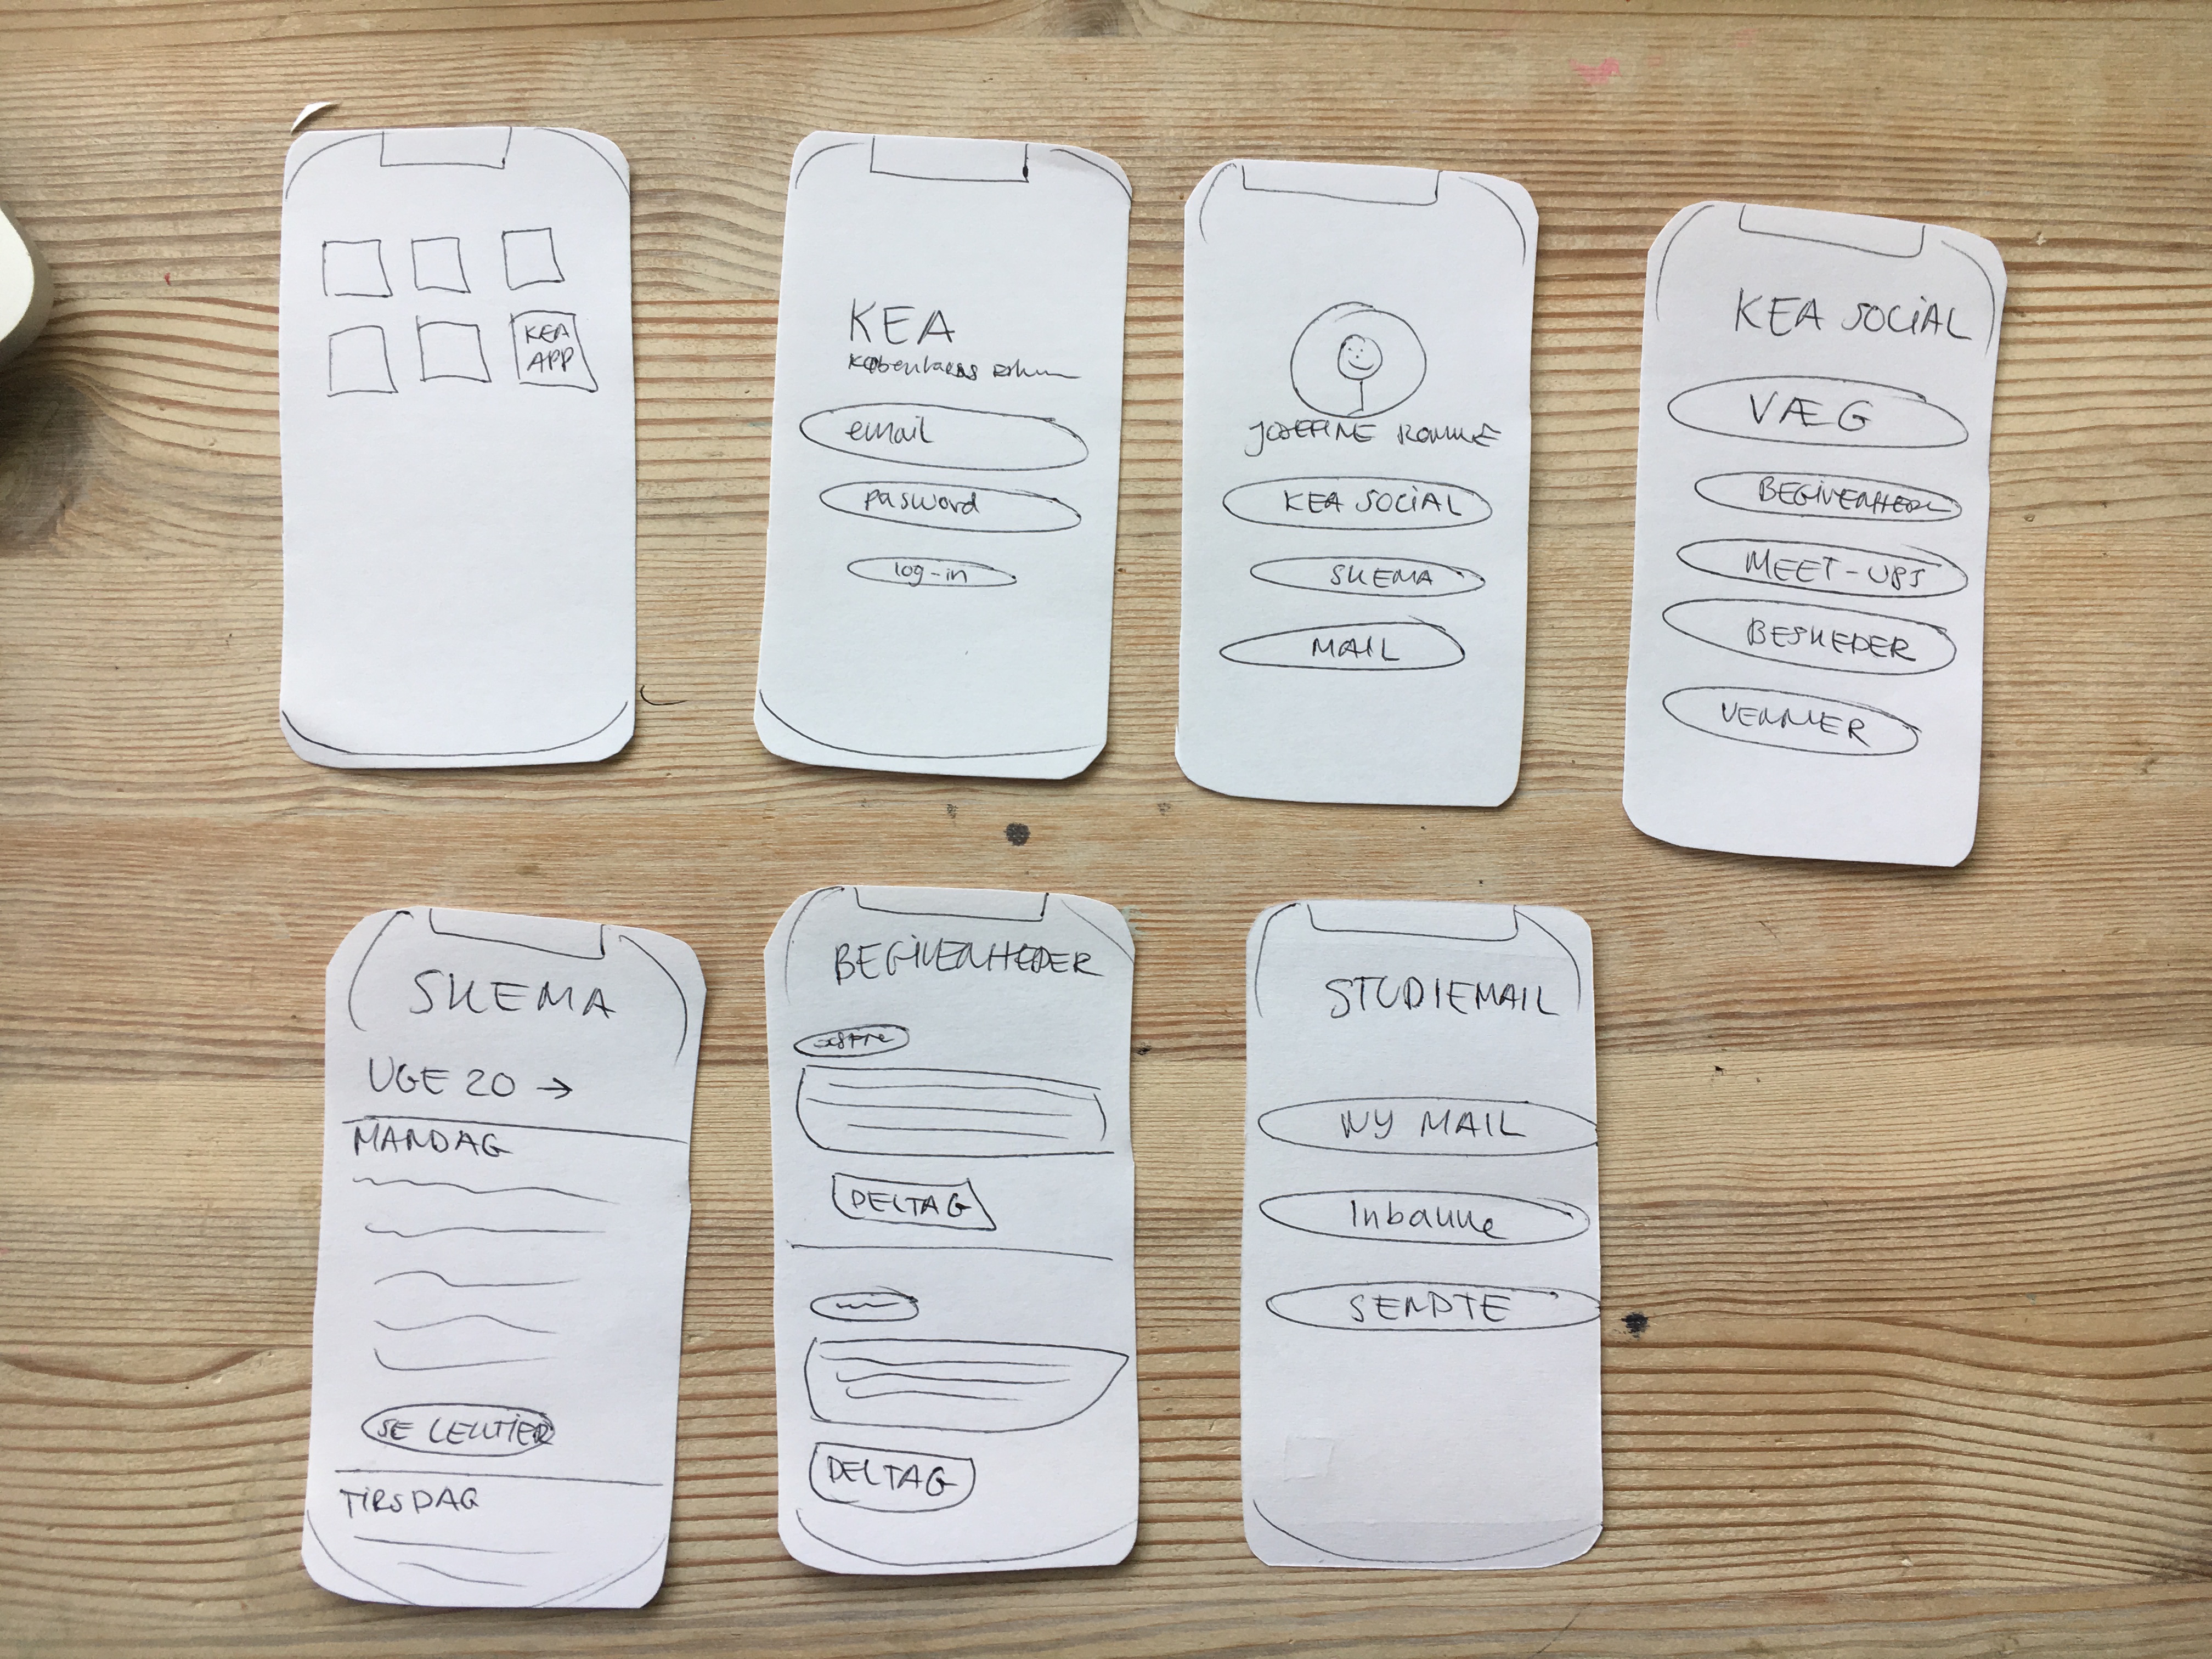 KEA
APP
KEA
Københavns
email
pasword
log-in
JOSEFINE
KEA SOCIAL
SKEMA
MAIL
KEA SOCIAL
VÆG
BEGIVENHEDER
MEET-UPS
BESKEDER
VENNER
SKEMA
UGE 20 →
MANDAG
SE LEKTIER
TIRSDAG
BEGIVENHEDER
DELTAG
DELTAG
STUDIEMAIL
NY MAIL
Inbakke
SENDTE